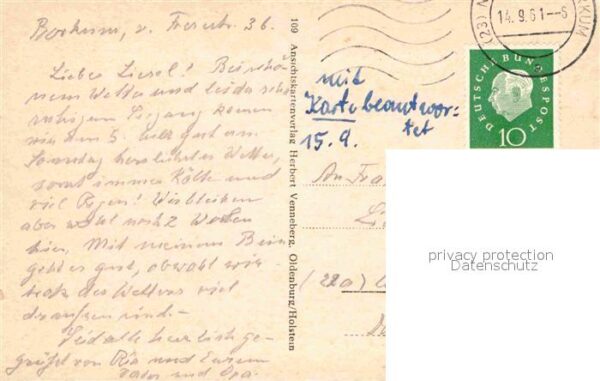 Borkum, v. Freser str. 36.
Liebes Liesel! Bei schö-
nem Wetter und leider sehr
ruhigem Seegang kamen
wir am 5. sehr gut an.
Sonntag herrlichstes Wetter,
sonst immer Kälte und
viel Regen! Wir bleiben
aber wohl noch 2 Wochen
hier. Mit meinem Bein
geht es gut, obwohl wir
trotz des Wetters viel
draußen sind. —
Seid alle herzlich ge-
grüßt von Ria und Eurem
Vater und Opa.
109 Ansichtskartenverlag Herbert Venneberg, Oldenburg/Holstein
mit
Karte beantwor-
tet
15.9.
An Fra
(22a)
(23)
14.9.61--8
KUM
DEUTSCHE BUNDESPOST
10
privacy protection
Datenschutz